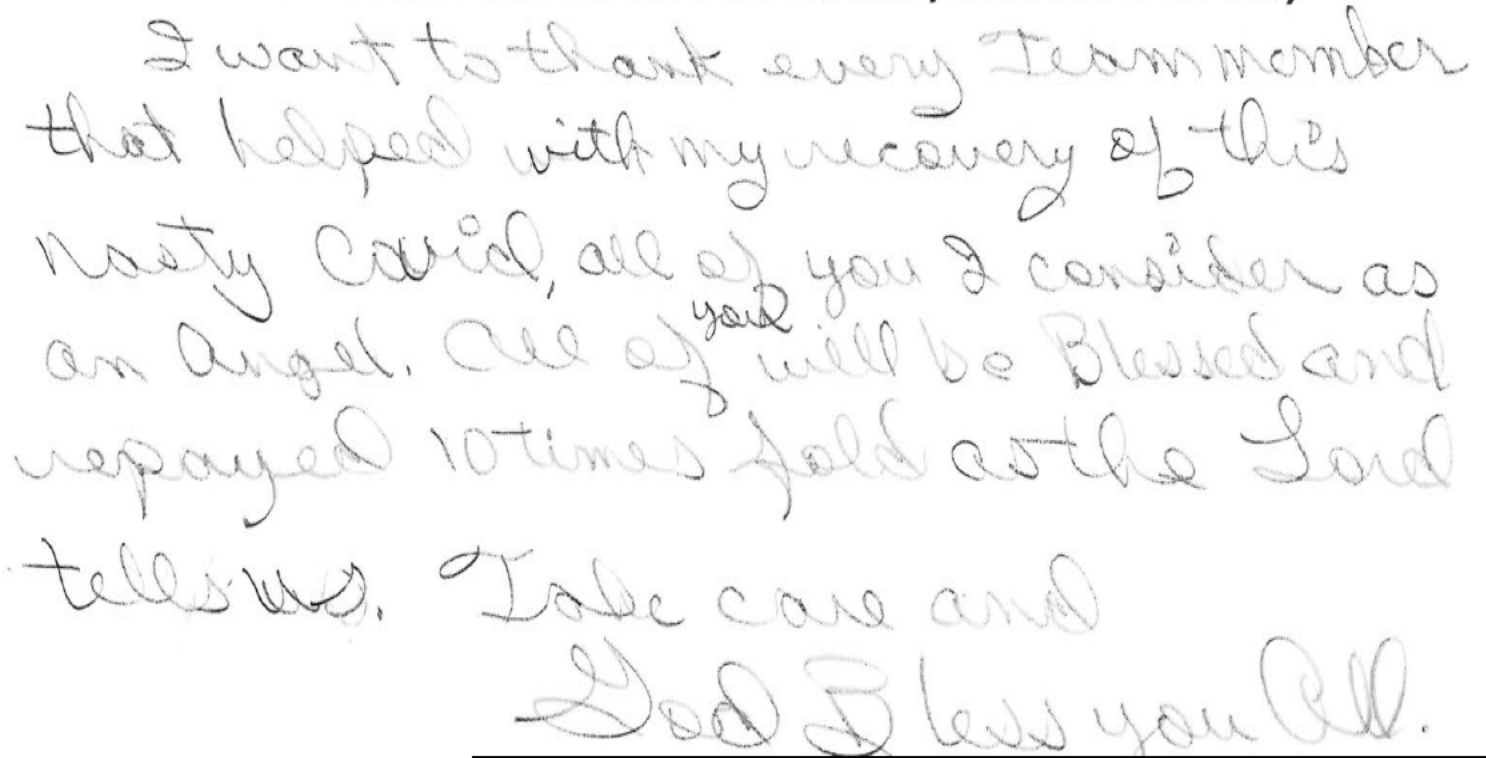 I want to thank every Team member
that helped with my recovery of this
Nasty Covid, all of you I consider as
an Angel. All of you will be Blessed and
repayed 10 times fold as the Lord
tells us. Take care and
God Bless you All.